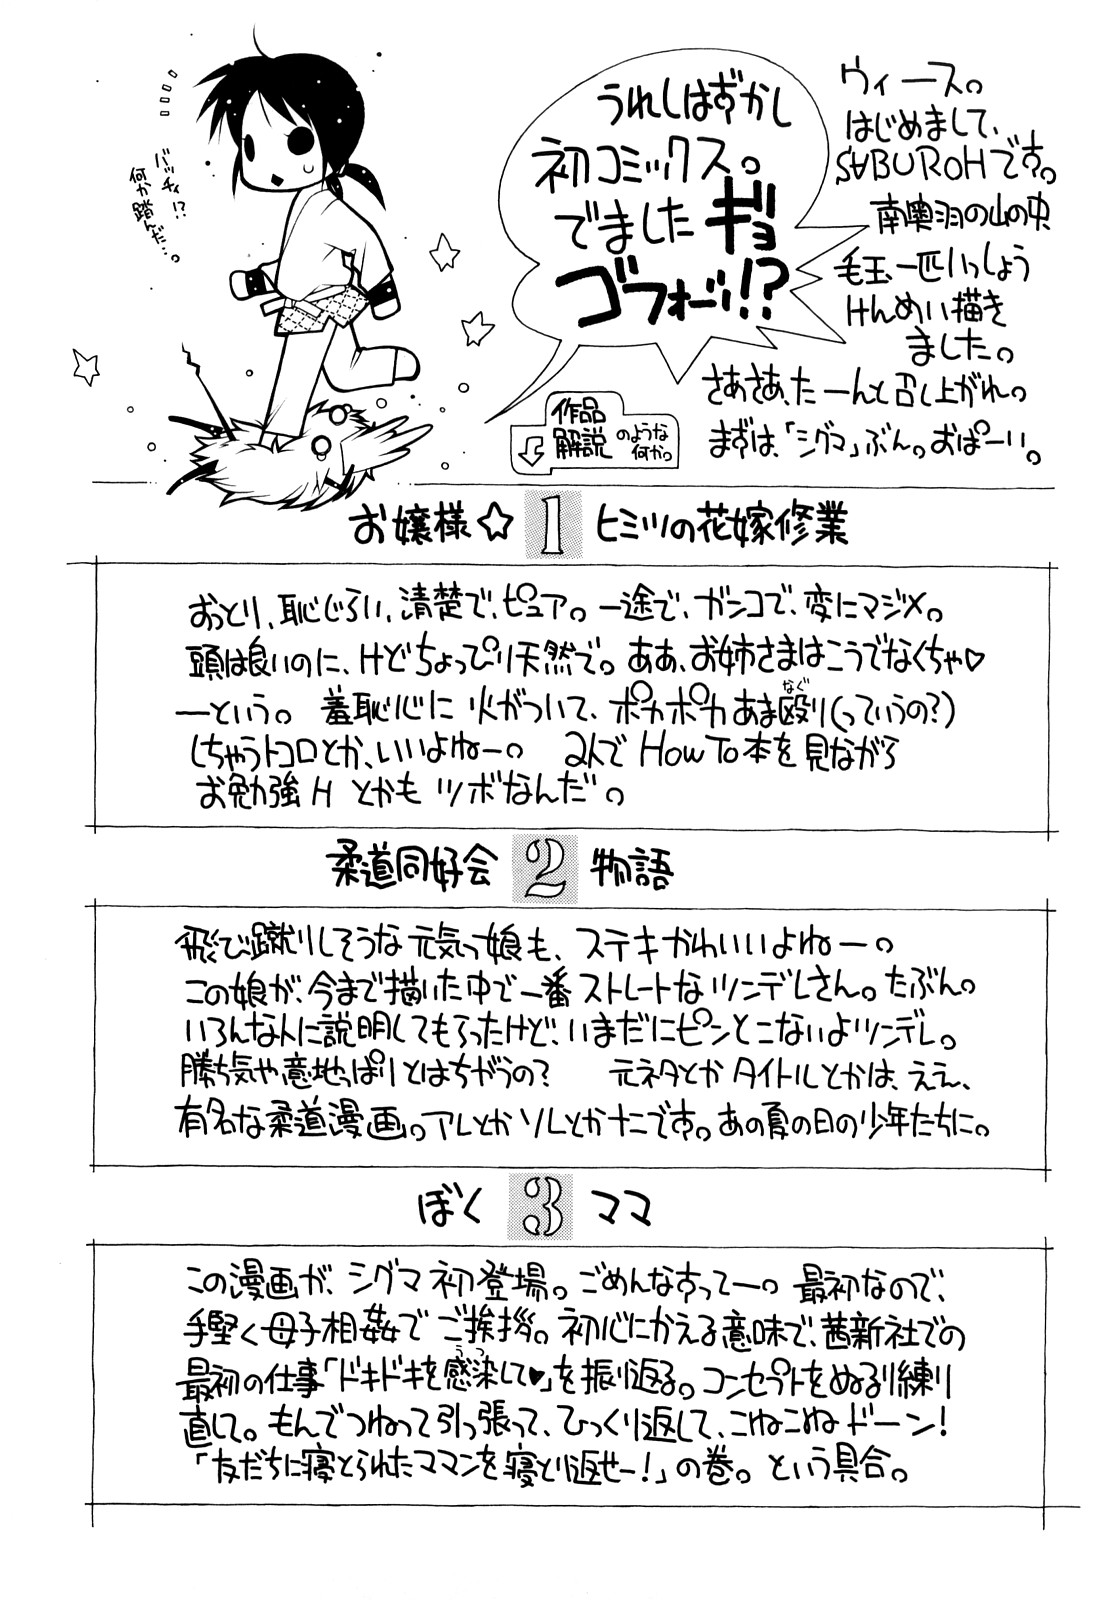 ウィース。
はじめまして、
SABUROHです。
南奥羽の山の中
毛玉一匹いっしょう
けんめい描き
ました。
さあさあ、たーんと召し上がれ。
まずは、「シグマ」ぶん。おぱーい。
うれしはずかし
初コミックス。
でましたギョ
ゴフォーッ!?
バッチィ!?
何か踏んだ…。
作品
解説
のような
何か。
お嬢様☆1ヒミツの花嫁修業
おっとり、恥じらい、清楚で、ピュア。一途で、ガンコで、変にマジメ。
頭は良いのに、けどちょっぴり天然で。ああ、お姉さまはこうでなくちゃ♡
―という。 羞恥心に火がついて、ポカポカあま殴り(っていうの?)
なぐ
しちゃうトコロとか、いいよねー。 2人でHow To本を見ながら
お勉強Hとかもツボなんだ。
柔道同好会2物語
飛び蹴りしそうな元気っ娘も、ステキかわいいよねー。
この娘が、今まで描いた中で一番ストレートなツンデレさん。たぶん。
いろんな人に説明してもらったけど、いまだにピンとこないよツンデレ。
勝ち気や意地っぱりとはちがうの? 元ネタとかタイトルとかは、ええ、
有名な柔道漫画。アレとかソレとかナニです。あの夏の日の少年たちに。
ぼく3ママ
この漫画が、シグマ初登場。ごめんなすってー。最初なので、
手堅く母子相姦でご挨拶。初心にかえる意味で、茜新社での
最初の仕事「ドキドキを感染して♥」を振り返る。コンセプトをぬるり練り
うつ
直して。もんでつねって引っ張って、ひっくり返して、こねこねドーン!
「友だちに寝とられたママンを寝とり返せー!」の巻。という具合。